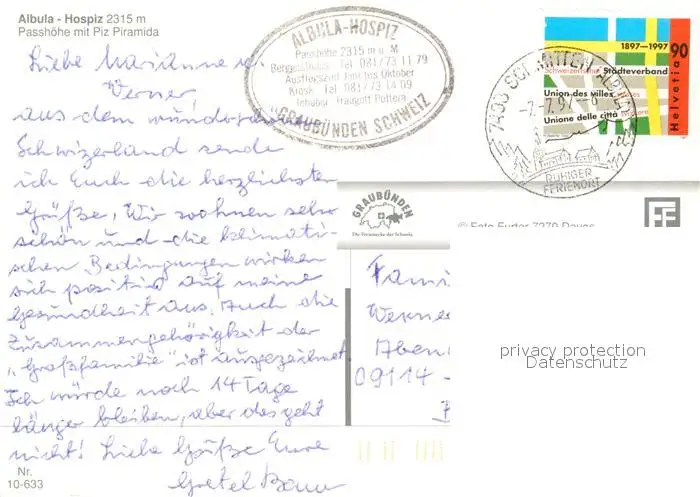 Albula - Hospiz 2315 m
Passhöhe mit Piz Piramida
Liebe Marianne u.
Werner,
aus dem wunder
Schwizerland sende
ich Euch die herzlichsten
Grüße, Wir wohnen sehr
schön und die klimati-
schen Bedingungen wirken
sich positiv auf meine
Gesundheit aus. Auch die
Zusammengehörigkeit der
„Großfamilie" ist ausgezeichnet
Ich würde noch 14 Tage
länger bleiben, aber das geht
nicht! Liebe Grüße Eure
Gretel
Nr.
10-633
ALBULA-HOSPIZ
Passhöhe 2315 m ü. M
Berggasthaus Tel 081/73 11 79
Ausflugsziel Juni bis Oktober
Kiosk Tel 081/73 14 09
Inhaber Traugott
GRAUBÜNDEN SCHWEIZ
7493 SCHMITTEN (ALBULA)
-7.-7.97
RUHIGER
FERIENORT
1897-1997
Schweizerischer Städteverband
Union des villes suisses
Unione delle città svizzere
Helvetia 90
GRAUBÜNDEN
Die Ferienecke der Schweiz.
© Foto Furter 7270 Davos
FF
Fami
Werner
Aben
09114 -
privacy protection
Datenschutz